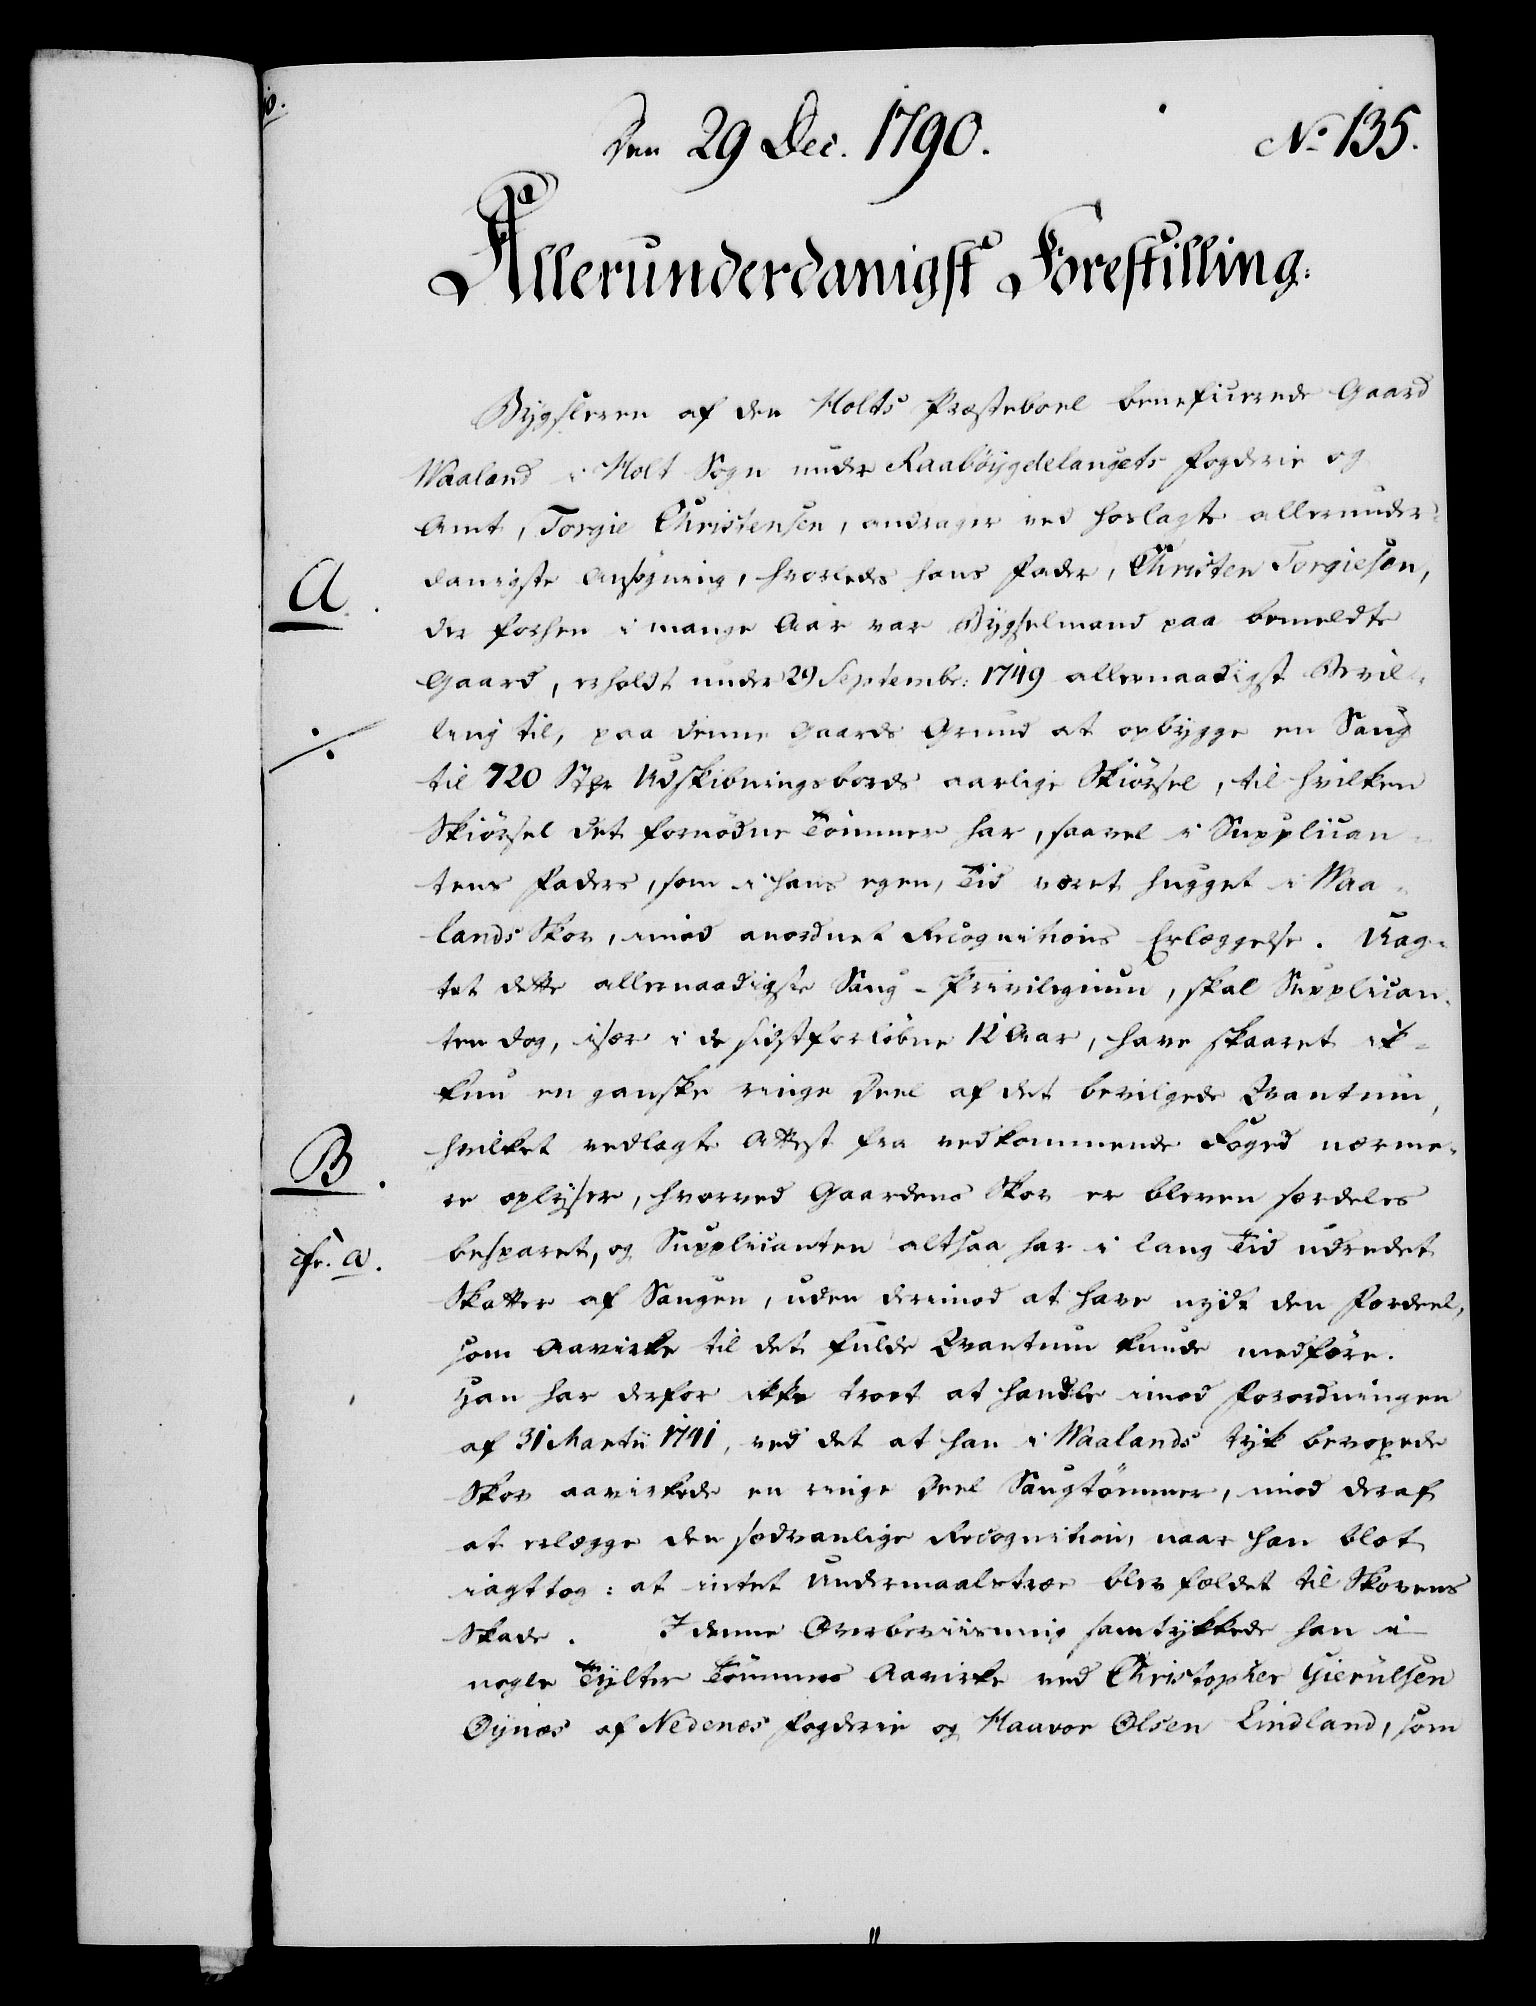 Den 29 Dec. 1790.
No 135.
Allerunderdanigst Forestilling.
Bygsleren af den Holts Præsteboel beneficerede Gaard
Waaland i Holt Sogn under Raaböygdelaugets Fogderie og
Amt, Torgie Christensen, andrager ved hoslagte allerunder-
A.
danigste Ansøgning, hvorledes hans Fader, Christen Torgiesøn,
der forhen i mange Aar var Bygselmand paa bemeldte
Gaard, erholdt under 29 Septembr: 1749 allernaadigst Bevil-
ling til, paa denne Gaards Grund at opbygge en Saug
til 720 Stkr Udskibningsbords aarlige Skiörsel, til hvilken
Skiörsel det fornödne Tömmer har, saavel i Supplican-
tens Faders, som i hans egen, Tid været hugget i Waa-
lands Skov, imod anordnet Recognitions Erlæggelse. Uag-
tet dette allernaadigste Saug-Privilegium, skal Supplican-
ten dog, især i de sidstforløbne 12 Aar, have skaaret ik-
kun en ganske ringe Deel af det bevilgede Qvantum,
B.
hvilket vedlagte Attest fra vedkommende Foged nærme-
re oplÿser, hvorved Gaardens Skov er bleven særdeles
cfr. a.
besparet, og Supplicanten altsaa har i lang Tid udredet
Skatter af Saugen, uden derimod at have nydt den Fordeel,
som Aavirke til det fulde Qvantum kunde medføre.
Han har derfor ikke troet at handle imod Forordningen
af 31 Martii 1741, ved det at han i Waalands tyk bevoxede
Skov aavirkede en ringe Deel Saugtömmer, imod deraf
at erlægge den sædvanlige Recognition, naar han blot
iagttog: at intet Undermaalstræe blev fældet til Skovens
Skade. I denne Overbeviisning samtykkede han i
nogle Tylter Tömmers Aavirke ved Christopher Gierulsen
Öynæs af Nedenæs Fogderie og Haavor Olsen Lindland, som